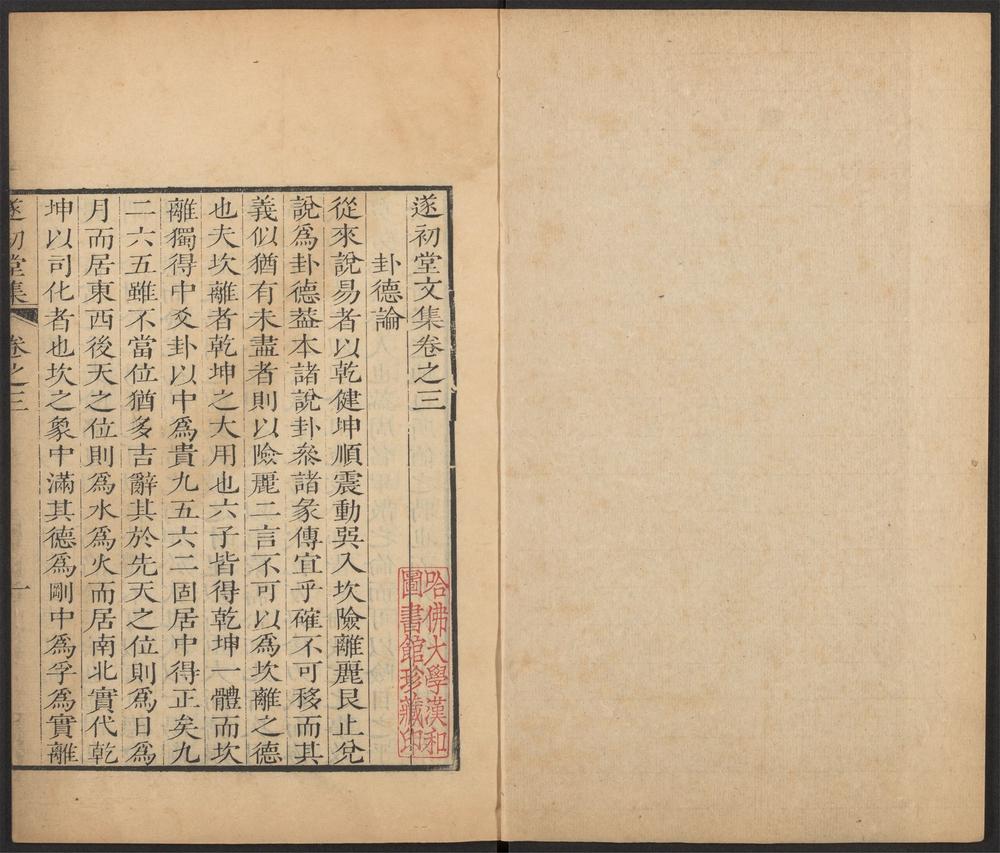 遂初堂文集卷之三
卦德論
從來說易者以乾健坤順震動㢲入坎險離麗艮止兌
說爲卦德葢本諸說卦叅諸彖傳宜乎確不可移而其
義似猶有未盡者則以險麗二言不可以爲坎離之德
也夫坎離者乾坤之大用也六子皆得乾坤一體而坎
離獨得中爻卦以中爲貴九五六二固居中得正矣九
二六五雖不當位猶多吉辭其於先天之位則爲日爲
月而居東西後天之位則爲水爲火而居南北實代乾
坤以司化者也坎之象中滿其德爲剛中爲孚爲實離
遂初堂集
卷之三
一
哈佛大學漢和
圖書館珍藏印